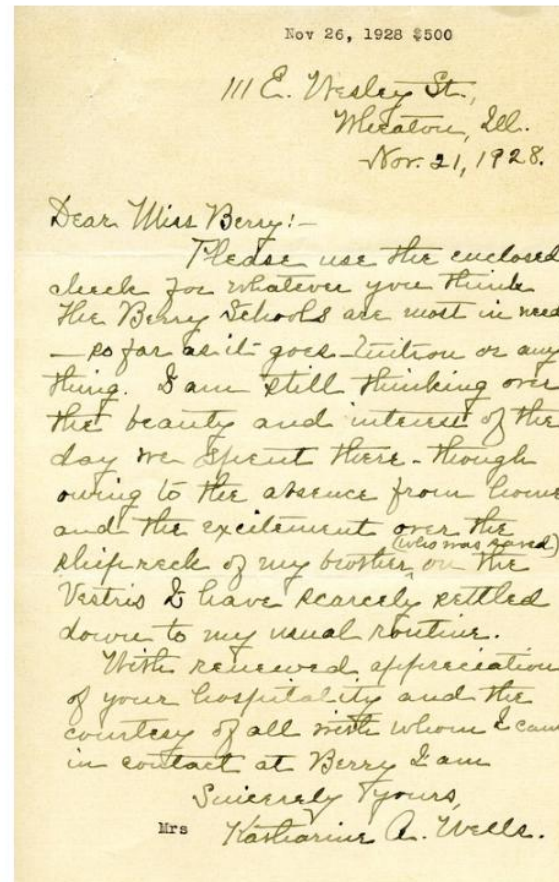 Nov 26, 1928 $500
111 E. Wesley St.,
Wheaton, Ill.
Nov. 21, 1928.
Dear Miss Berry:-
Please use the enclosed
check for whatever you think
the Berry Schools are most in need
- so far as it goes - Tuition or any
thing. I am still thinking over
the beauty and interest of the
day we spent there - though
owing to the absence from home
and the excitement over the
(who was saved)
shipreck of my brother, on the
Vestris I have scarcely settled
down to my usual routine.
With renewed appreciation
of your hospitality and the
courtesy of all with whom I came
in contact at Berry I am
Sincerely Yours,
Mrs Katharine A. Wells.